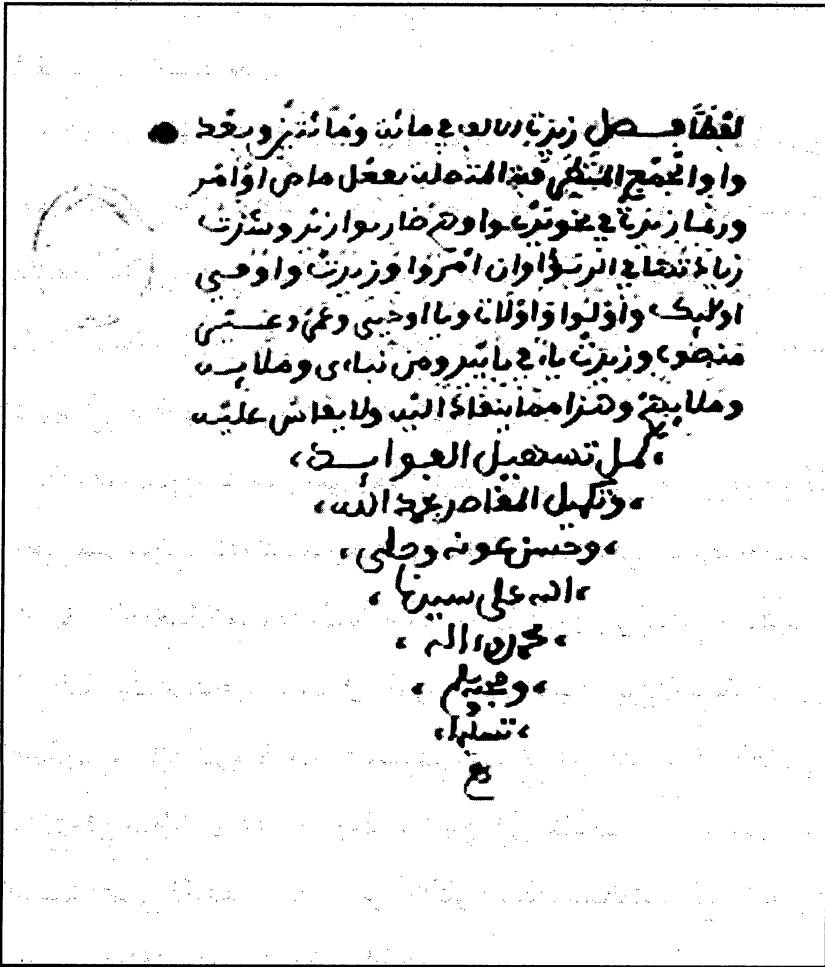 لفظا فصل زيدت الف في مائة ومائتين وبعد
واو الجمع المتطرفة المتصلة بفعل ماض او أمر
وربما زيدت في نحو يدعوا وهم ضاربوا زيد وشذت
زيادتها في الربوا وان امرؤا وزيدت واو في
اوليك وأولوا وأولات ويا اوخي وعمرو غير
منصوب وزيدت ياء في باييد ومن نباى وملايه
وملايهم وهذا مما ينقاد اليه ولا يقاس عليه
كمل تسهيل الفوايد
وتكميل المقاصد بحمد الله
وحسن عونه وصلى
الله على سيدنا
محمد واله
وصحبه وسلم
تسليما